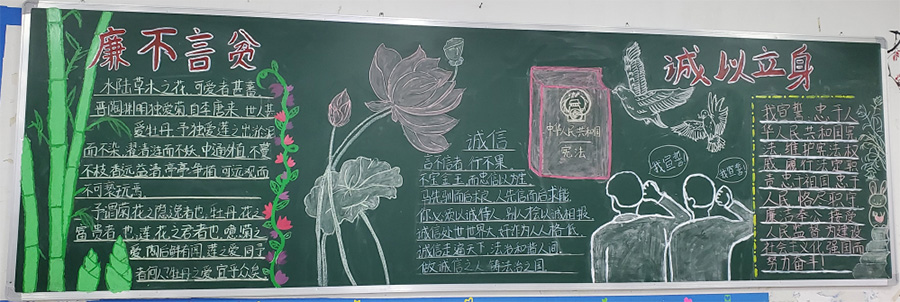 廉不言贫
水陆草木之花,可爱者甚蕃
晋陶渊明独爱菊,自李唐来,世人甚
爱牡丹,予独爱莲之出淤泥
而不染,濯清涟而不妖,中通外直,不蔓
不枝,香远益清,亭亭净植,可远观而
不可亵玩焉
予谓菊花之隐逸者也,牡丹,花之
富贵者也,莲花之君者也,噫!菊之
爱,陶后鲜有闻,莲之爱,同予
者何人?牡丹之爱,宜乎众矣
诚信
言不信者 行不果
不宝金玉,而忠信以为宝
马先驯而后求良,人先信而后求能
你必须以诚待人,别人才会以诚相报
诚信处世
诚信走遍天下
做诚信之人 铸法治之国
中华人民共和国
宪法
诚以立身
我宣誓
我宣誓
我宣誓 忠于中
华人民共和国宪
法 维护宪法权
威 履行法定职
责 忠于祖国 忠于
人民 恪尽职守
廉洁奉公 接受
人民监督 为建设
社会主义化强国而
努力奋斗!